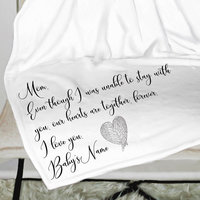 Mom,
Even though I was unable to stay with
you, our hearts are together, forever.
I love you.
Baby's Name